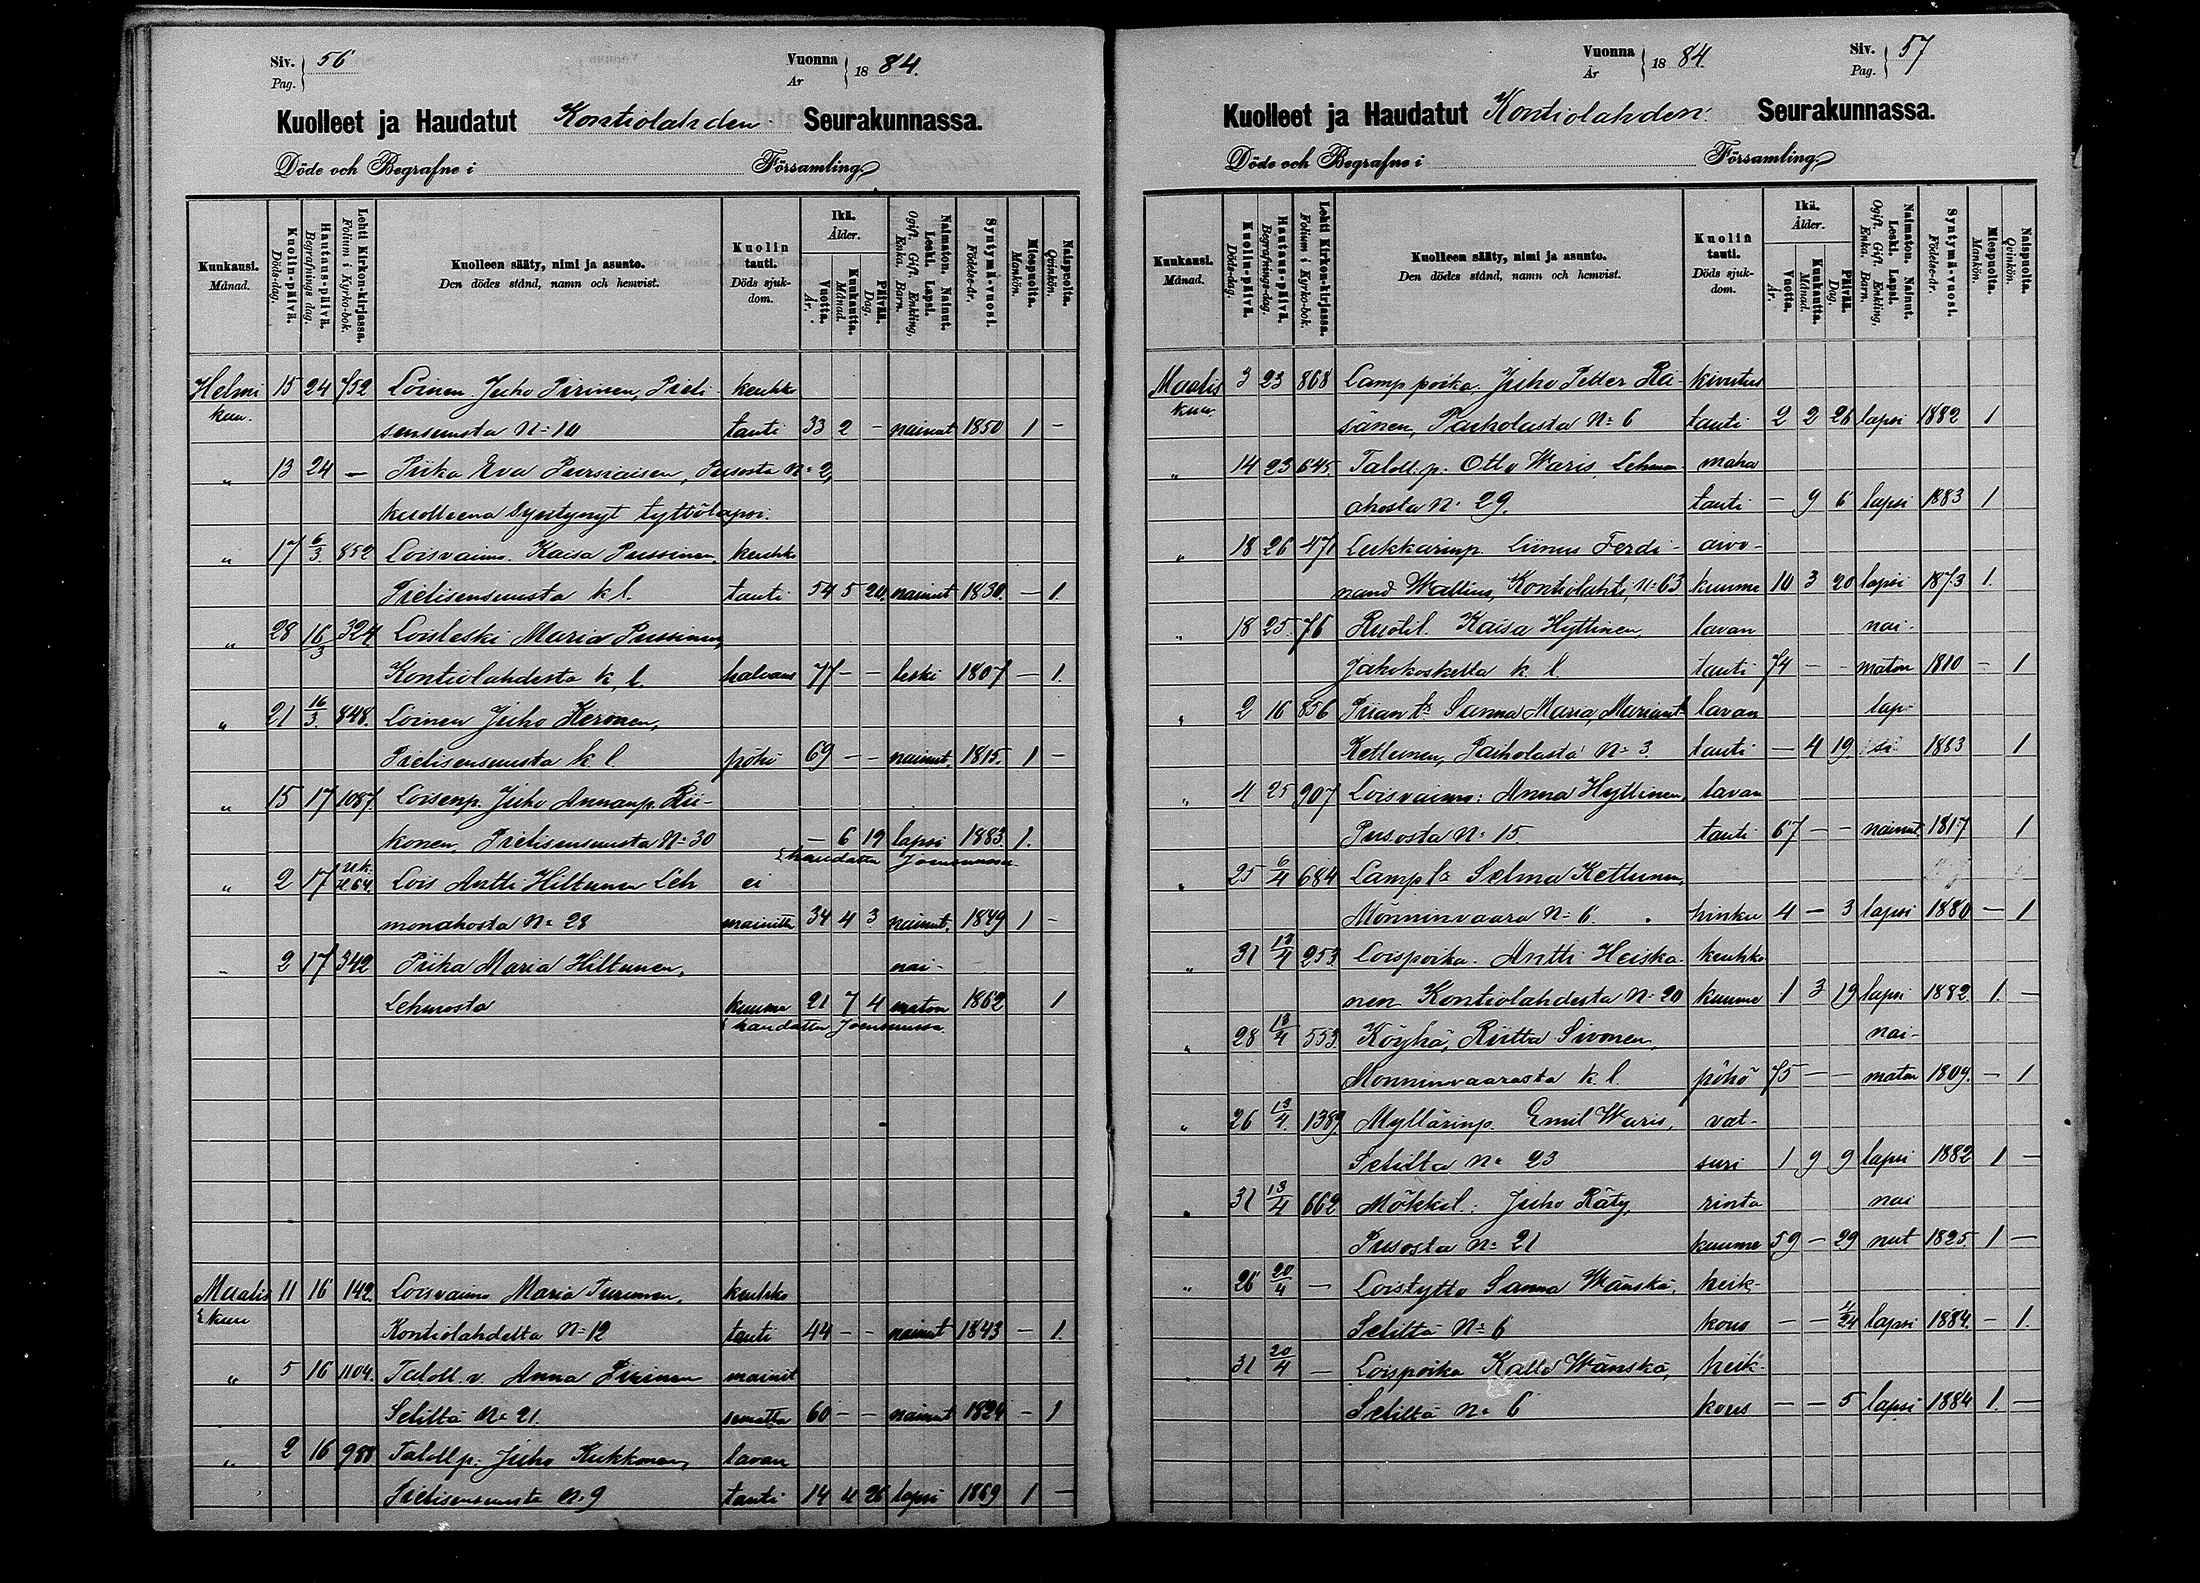 Siv. 56
Pag.
Vuonna 1884.
År
Kuolleet ja Haudatut Kontiolahden Seurakunnassa.
Döde och Begrafne i Församling
Kuukausi. Månad.
Kuolin-päivä. Döds-dag.
Hautaus-päivä. Begrafnings dag.
Lehti Kirkon-kirjassa. Folium i Kyrko-bok.
Kuolleen sääty, nimi ja asunto.
Den dödes stånd, namn och hemvist.
Kuolin tauti. Döds sjukdom.
Ikä. Ålder.
Vuotta. År.
Kuukautta. Månad.
Päivää. Dag.
Naimaton. Nainut. Leski. Lapsi. Ogift. Gift. Enkling, Enka. Barn.
Syntymä-vuosi. Födelse-år.
Miespuolta. Mankön.
Naispuolta. Qvinkön.
Helmi 15 24 752 Loinen Juho Pirinen, Pieli- keuhko
kuu. sensuusta N:10 tauti 33 2 - nainut 1850 1 -
" 13 24 - Piika Eva Pursiaisen, Pusosta N:2,
kuolleena syntynyt tyttölapsi.
" 17 6/3 852 Loisvaimo Kaisa Pussinen, keuhko
Pielisensuusta k.l. tauti 54 5 20 nainut 1830. - 1.
" 28 16/3 324 Loisleski Maria Pussinen,
Kontiolahdesta k.l. halvaus 77 - - leski 1807 - 1.
" 21 16/3. 848. Loinen Juho Keronen,
Pielisensuusta k.l. pöhö 69 - - nainut. 1815. 1 -
" 15 17 1087 Loisenp. Juho Annanp. Rii-
konen, Pielisensuusta N:30 - 6 19 lapsi 1883 1.
haudattu Joensuussa
" 2 17 Lois Antti Hiltunen Leh- ei
monahosta N:28 mainittu 34 4 3 nainut. 1849 1 -
" 2 17 342 Piika Maria Hiltunen, nai-
Lehmosta kuume 21 7 4 maton 1862 1
haudattu Joensuussa
Maalis 11 16 142 Loisvaimo Maria Turunen, keuhko
kuu Kontiolahdelta N:12 tauti 44 - - nainut 1843 - 1.
" 5 16 1104. Taloll. v. Anna Pirinen mainit
Seliltä N:21. sematta 60 - - nainut 1824 - 1
" 2 16 988 Taloll p. Juho Kukkonen, lavan
Pielisensuusta N:9 tauti 14 4 26 lapsi 1869 1 -
Vuonna 1884.
År
Siv. 57
Pag.
Kuolleet ja Haudatut Kontiolahden Seurakunnassa.
Döde och Begrafne i Församling
Kuukausi. Månad.
Kuolin-päivä. Döds-dag.
Hautaus-päivä. Begrafnings-dag.
Lehti Kirkon-kirjassa. Folium i Kyrko-bok.
Kuolleen sääty, nimi ja asunto.
Den dödes stånd, namn och hemvist.
Kuolin tauti. Döds sjukdom.
Ikä. Ålder.
Vuotta. År.
Kuukautta. Månad.
Päivää. Dag.
Naimaton. Nainut. Leski. Lapsi. Ogift. Gift. Enkling, Enka. Barn.
Syntymä-vuosi. Födelse-år.
Miespuolta. Mankön.
Naispuolta. Qvinkön.
Maalis 3 23 868 Lamp poika Juho Petter Rä- kivutus
kuu. sänen, Paiholasta N:6 tauti 2 2 26 lapsi 1882 1
" 14 23 645. Taloll. p. Otto Waris, Lehmon- maha
ahosta N:29. tauti - 9 6 lapsi 1883 1
" 18 26 471 Lukkarinp. Liinus Ferdi- aivo-
nand Wallius, Kontiolahti, N:63 kuume 10 3 20 lapsi 1873 1.
" 18 25 76 Ruotil. Kaisa Hyttinen, lavan nai-
Jakokoskelta k.l. tauti 74 - - maton 1810 - 1
" 2 16 856 Piian t:r Sanna Maria, Mariant. lavan lap-
Kettunen, Paiholasta N:3. tauti - 4 19. si 1883 1
" 4 25 907 Loisvaimo: Anna Hyttinen, lavan
Pusosta N:15. tauti 67 - - nainut 1817 1
" 25 6/4 684 Lamp t:r Selma Kettunen,
Mönninvaara N:6. hinku 4 - 3 lapsi 1880 - 1
" 31 13/4 253 Loispoika Antti Heiska- keuhko
nen Kontiolahdesta N:20 kuume 1 3 19 lapsi 1882 1. -
" 28 13/4 553 Köyhä, Riitta Sivonen, nai-
Mönninvaarasta k.l. pöhö 75 - - maton 1809. - 1
" 26 13/4. 1389. Myllärinp. Emil Waris, vat-
Seliltä N:23 suri 1 9 9 lapsi 1882 1 -
" 31 13/4 662 Mökkil. Juho Räty, rinta nai
Pusosta N:21 kuume 59 - 29 nut 1825 1 -
" 26 20/4 - Loistyttö Sanna Wänskä, heik-
Seliltä N:6 kous - - lapsi 1884. - 1.
" 31 20/4 - Loispoika Kalle Wänskä, heik-
Seliltä N:6 kous - - 5 lapsi 1884 1. -